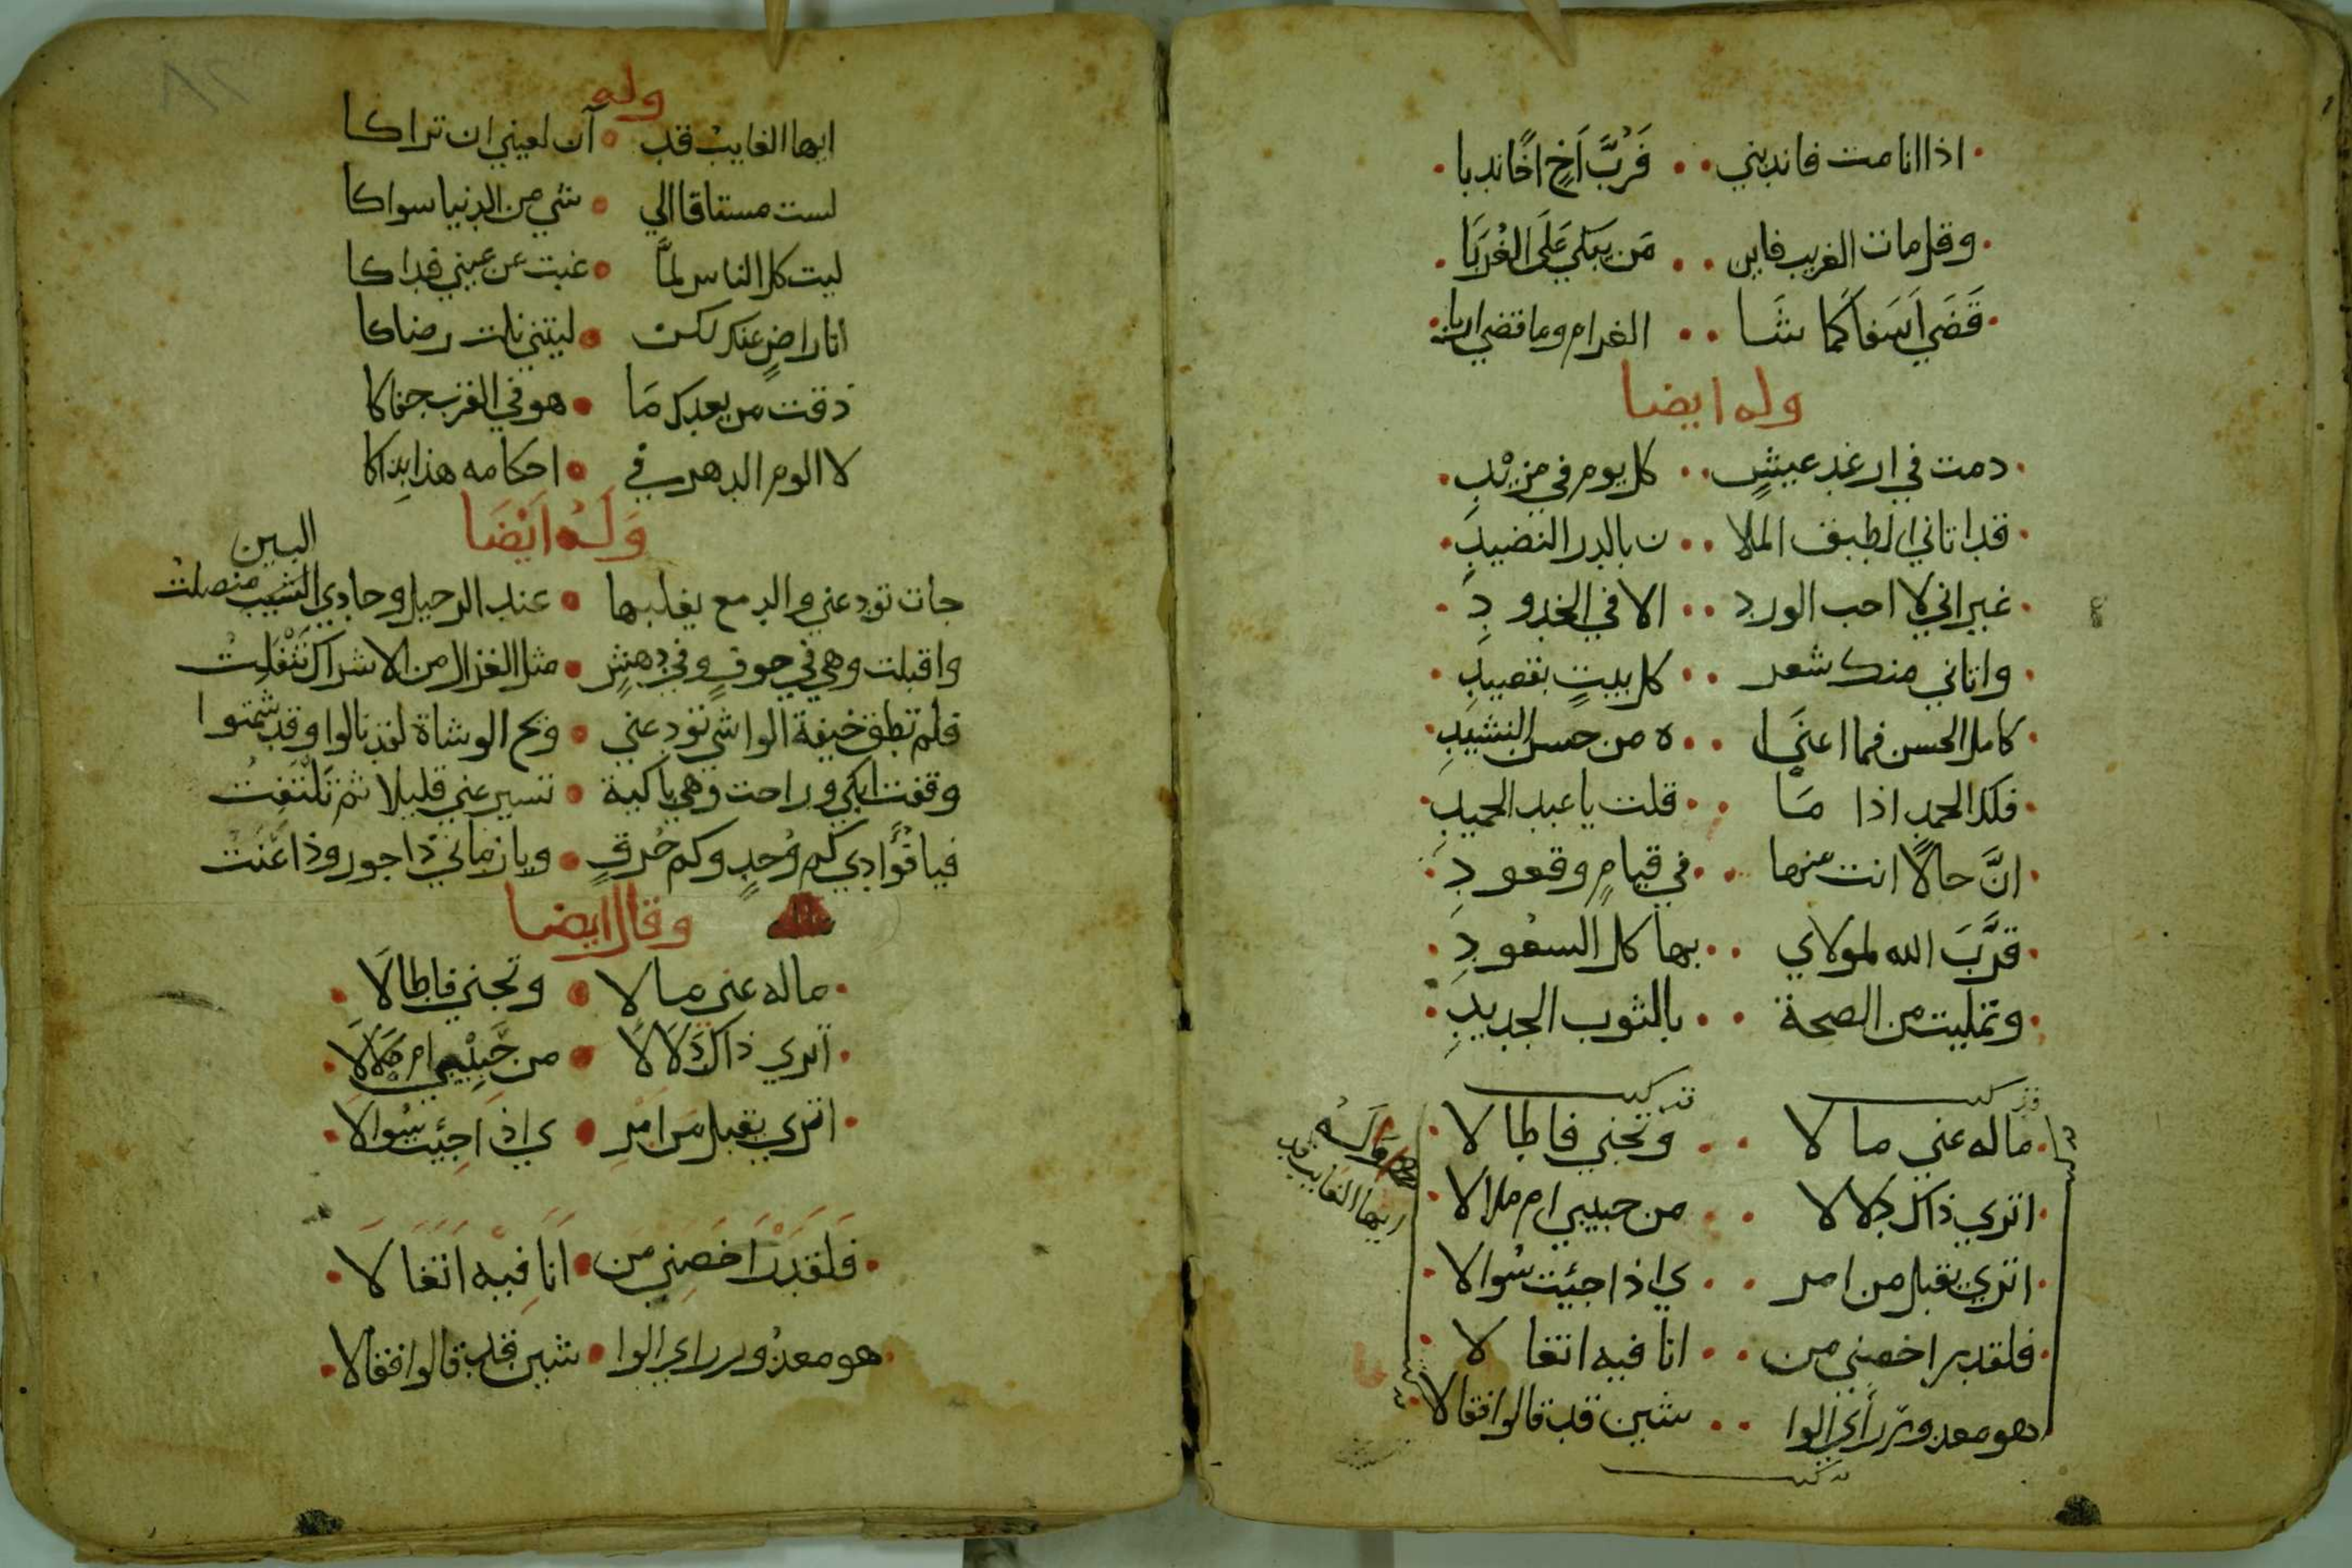 اذا انا مت فاندبني فَرُبَّ اَخٍ اخًا ندبا
وقل مات الغريب فاين مَن يبكي عَلَى الغُرَبَا
قَضَي اَسَفاً كَما شَا الغرام وما قضي اربا
وله ايضا
دمت في ارغد عيشٍ كل يوم في مزيْدِ
قد اتاني الطبق الملا ن بالدر النضيدِ
غير اني لا احب الورد الا في الخدودِ
واتاني منك شعر كل بيتٍ بقصيدِ
كامل الحسن فما اغنَا ه من حسن النشيدِ
فلك الحمد اذا مَا قلت يا عبد الحميدِ
انَّ حالاً انت عنها في قيامٍ وقعودِ
قرَّبَ الله لمولاي بها كل السعُودِ
وتمليت من الصحة بالثوب الجديدِ
ماله عني مالا وتجني فاطالا
اتري ذاك دلالا من حبيبي ام ملالا
اتري يقبل من امر ي اذا جئت سُوالا
فلقد راخصني من انا فيه اتغالا
هو معذور راي الوا شين قد قالوا فقالا
وله
ايها الغايب قد
وله
ايها الغايبُ قد آن لعيني ان تراكا
لست مستاقا الي شي من الدنيا سواكا
ليت كل الناس لمَّا غبت عن عيني فداكا
انا راضٍ عنك لكن ليتني نلت رضاكا
ذقت من بعدك مَا هو في القرب جفاكا
لا الوم الدهر في احكامه هذا بِذاكا
وَلَهُ اَيْضَا
البين
جات تودعني والدمع يغلبها عند الرحيل وحادي الشيب منصلتُ
واقبلت وهي في خوفٍ وفي دهشٍ مثل الغزال من الاشراك تَنْفَلِتُ
فلم تطق خيفة الواشي تودعني ويح الوشاة لقد نالوا وقد شمتوا
وقفت ابكي وراحت وهي باكية تسير عني قليلا ثم تَلْتَفِتُ
فيا فُؤَادي كم وُجدٍ وكم حُرقٍ ويا زماني ذا جور وذا عَنَتُ
وقال ايضا
ماله عني مالا وتجني فاطالَا
اتري ذاك دَلَالَا من حَبِيْبي ام مَلَالَا
اتري يقبل مَن امْرِ ي اذا جِئت سُوالَا
فَلَقَدْ رَاخَصَنِي من اَنَا فِيْه اتَغَالَا
هو معذُور راي الوا شين قد قالوا فقالا